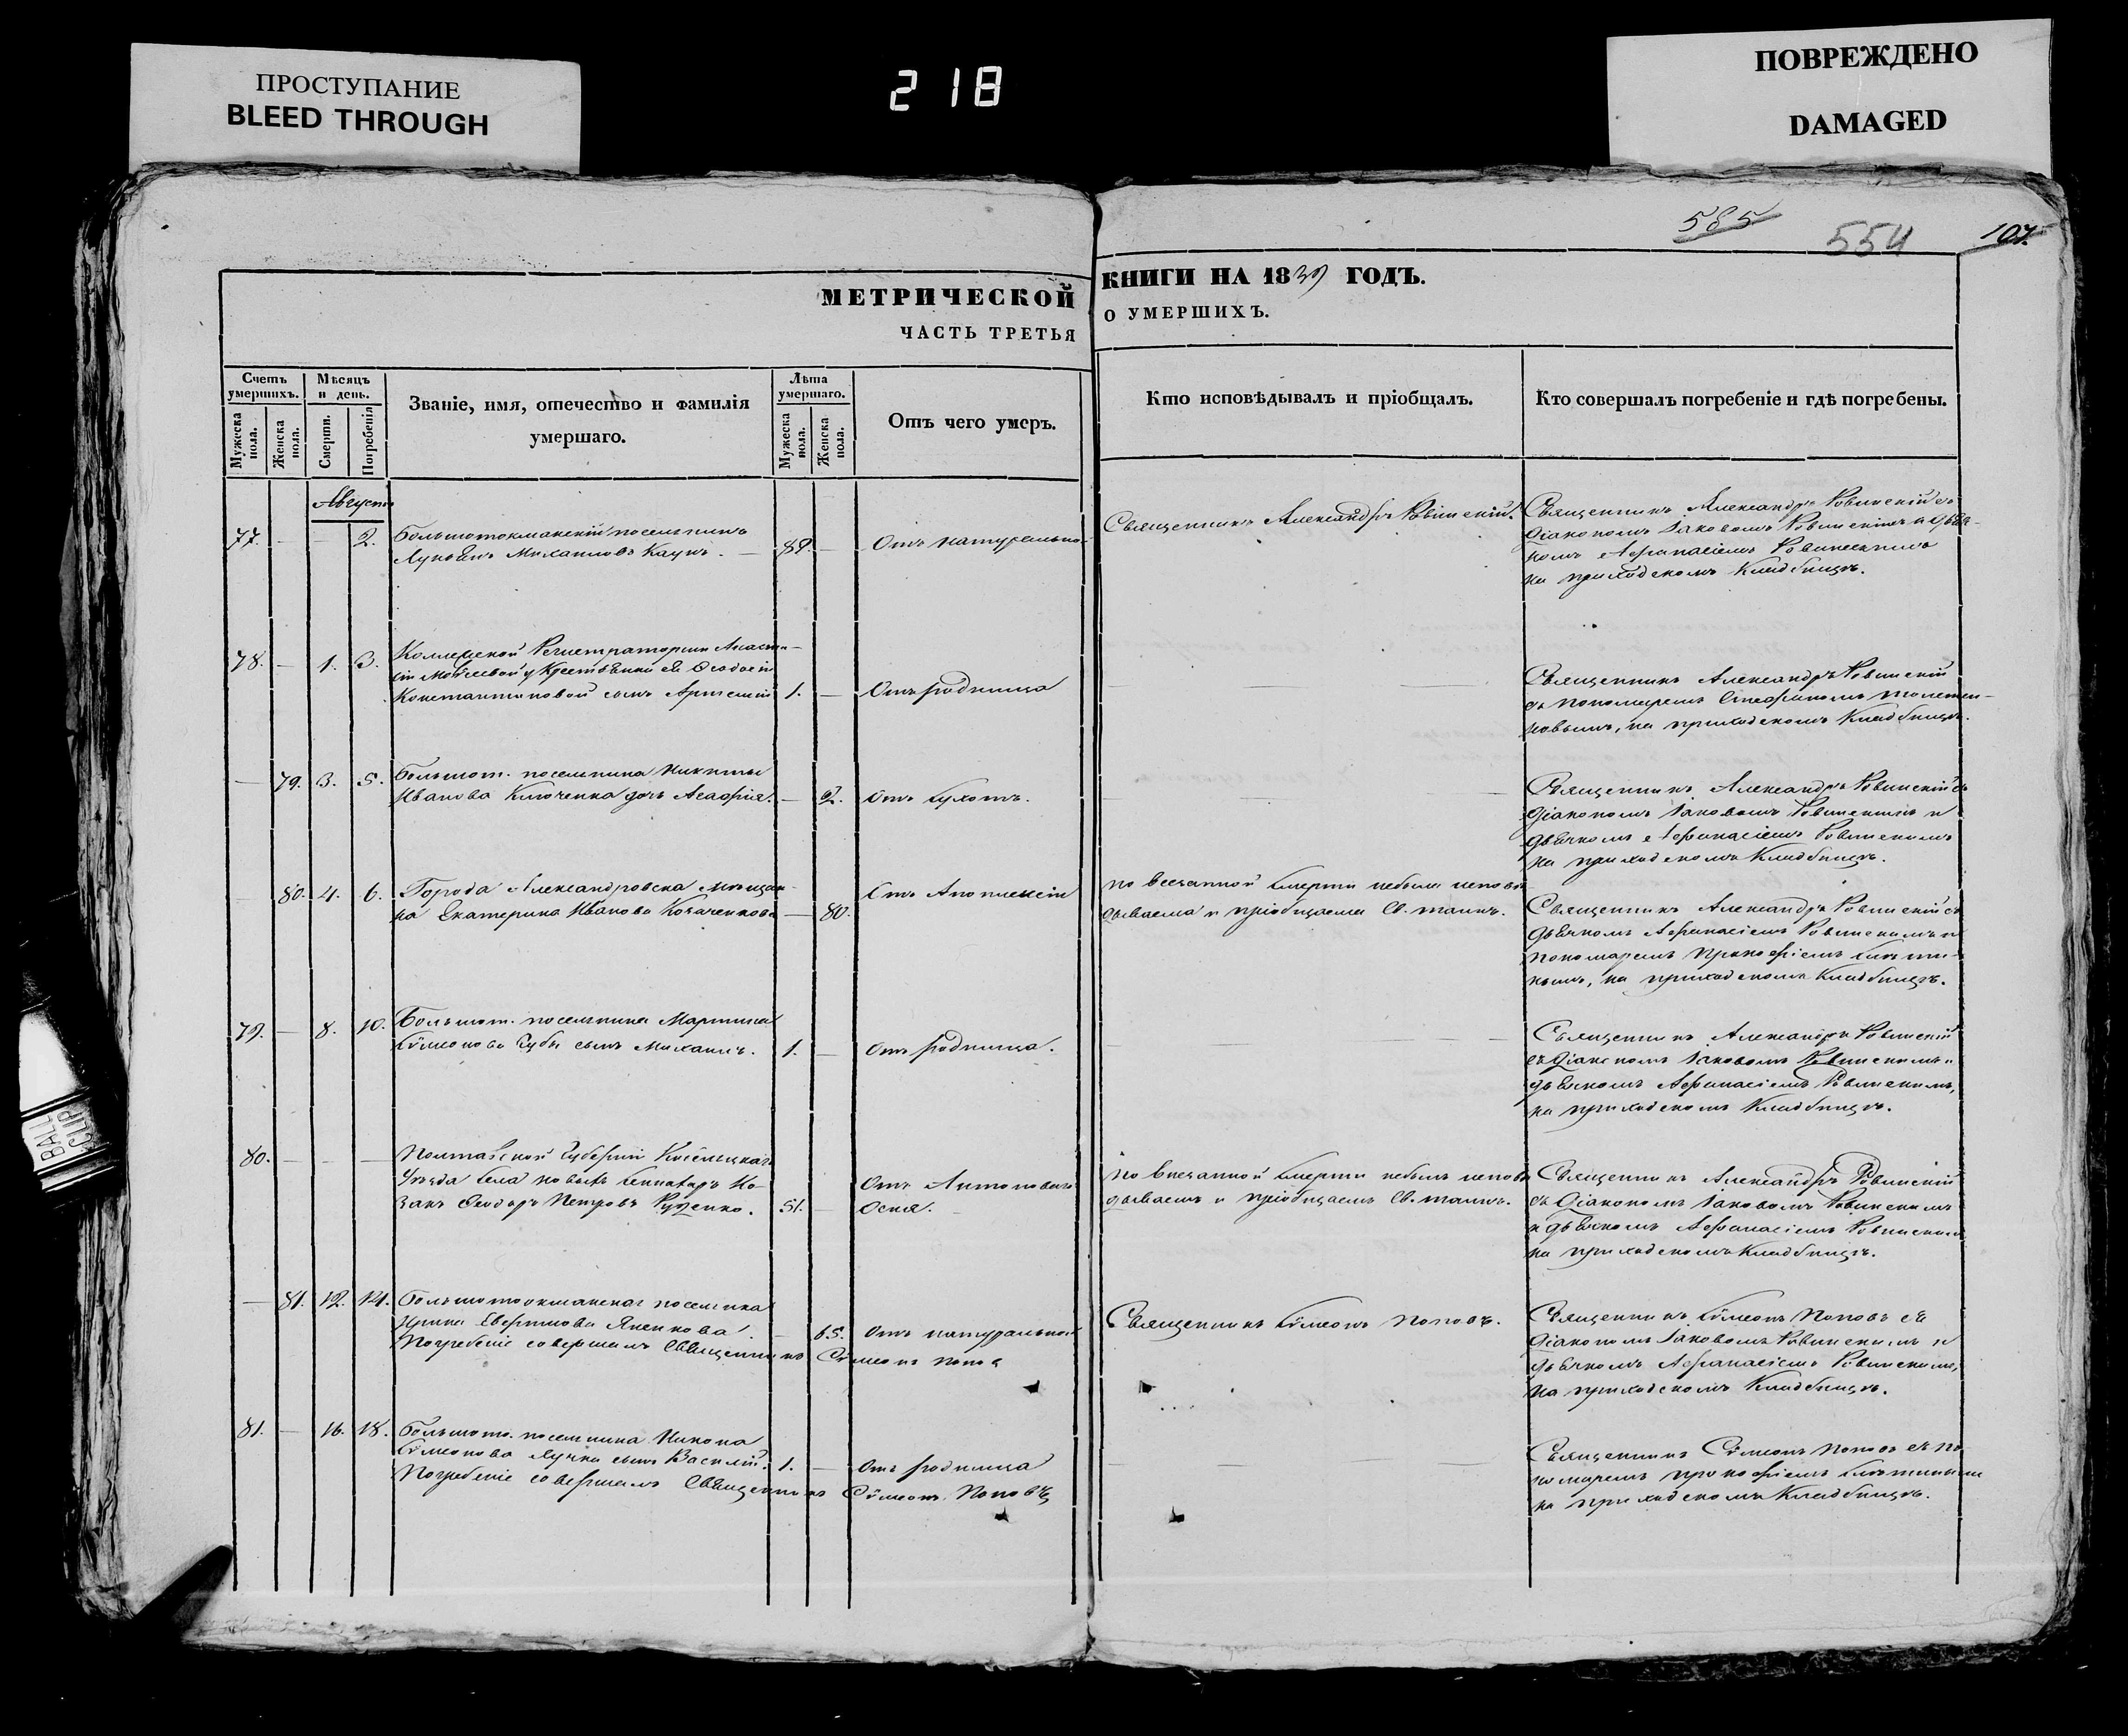 ПРОСТУПАНИЕ
BLEED THROUGH
218
ПОВРЕЖДЕНО
DAMAGED
585
554
107.
МЕТРИЧЕСКОЙ
ЧАСТЬ ТРЕТЬЯ
КНИГИ НА 1839 ГОДЪ.
О УМЕРШИХЪ.
Счетъ умершихъ.
Мужеска пола.
Женска пола.
Мѣсяцъ и день.
Смерти.
Погребенія
Званіе, имя, отечество и фамилія
умершаго.
Лѣта умершаго.
Мужеска пола.
Женска пола.
Отъ чего умеръ.
Кто исповѣдывалъ и пріобщалъ.
Кто совершалъ погребеніе и гдѣ погребены.
Августъ
77. — — 2. Большотокмакскій поселянинъ
Лукьянъ Михаиловъ Каунъ. — 89. — Отъ натуральной
Священникъ Александръ Ровинскій.
Священникъ Александръ Ровинскій съ
Діакономъ Іаковомъ Ровинскимъ и дьяч-
комъ Афанасіемъ Ровинскимъ
на приходскомъ Кладбищѣ.
78. — 1. 3. Коллежской Регистраторши
Константиновой сынъ Артемій 1. — Отъ родимца
Священникъ Александръ Ровинскій
съ пономаремъ Стефаномъ
на приходскомъ Кладбищѣ.
— 79. 3. 5. Большот. поселянина Никиты
Иванова Ключенка дочь Агафія. — 2. Отъ сухотъ.
Священникъ Александръ Ровинскій съ
Діакономъ Іаковомъ Ровинскимъ и
дьячкомъ Афанасіемъ Ровинскимъ
на приходскомъ Кладбищѣ.
— 80. 4. 6. Города Александровска мѣщан-
ка Екатерина Иванова Козаченкова — 80. Отъ Апоплексіи
по внезапной смерти небыла исповѣ
дываема и пріобщаема Св. таинъ.
Священникъ Александръ Ровинскій съ
дьячкомъ Афанасіемъ Ровинскимъ и
пономаремъ Прокофіемъ
на приходскомъ Кладбищѣ.
79. — 8. 10. Большот. поселянина Мартина
Сѵмеонова Губы сынъ Михаилъ. 1. — Отъ родимца.
Священникъ Александръ Ровинскій
съ Діакономъ Іаковомъ Ровинскимъ и
дьячкомъ Афанасіемъ Ровинскимъ,
на приходскомъ Кладбищѣ.
80. — — — Полтавской Губерніи
Уѣзда села Ко-
закъ Феодоръ Петровъ 51. — Отъ Антонового
Огня.
по внезапной смерти небылъ исповѣ
дываемъ и пріобщаемъ Св. таинъ.
Священникъ Александръ Ровинскій
съ Діакономъ Іаковомъ Ровинскимъ
и дьячкомъ Афанасіемъ Ровинскимъ
на приходскомъ Кладбищѣ.
— 81. 12. 14. Большотокмакская поселянка
Ирина — 65. Отъ натуральной
Погребеніе совершалъ Священникъ Сѵмеонъ Поповъ
Священникъ Сѵмеонъ Поповъ.
Священникъ Сѵмеонъ Поповъ съ
Діакономъ Іаковомъ Ровинскимъ и
дьячкомъ Афанасіемъ Ровинскимъ,
на приходскомъ Кладбищѣ.
81. — 16. 18. Большото. поселянина Никона
Сѵмеонова сынъ Василій. 1. — Отъ родимца
Погребеніе совершалъ Священникъ Сѵмеонъ Поповъ
Священникъ Сѵмеонъ Поповъ съ по
номаремъ Прокофіемъ
на приходскомъ Кладбищѣ.
BALL
CLIP